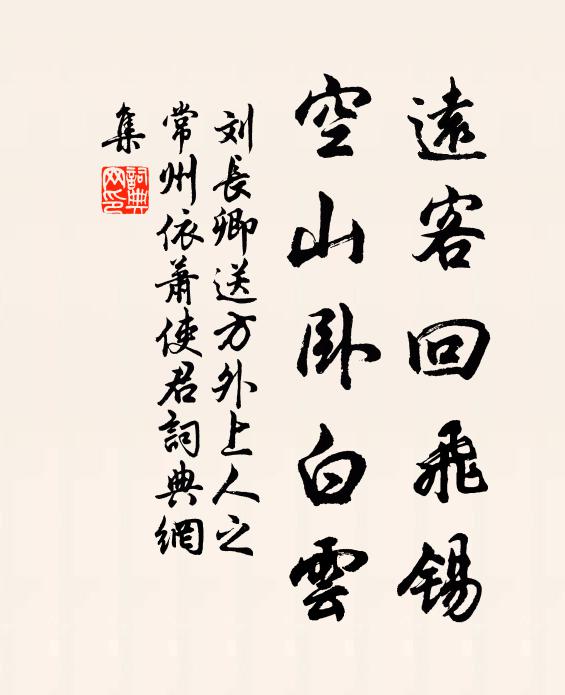 遠客回飛錫
空山臥白雲
刘長卿送方外上人之
常州依蕭使君詞典網
集
詞典
网印